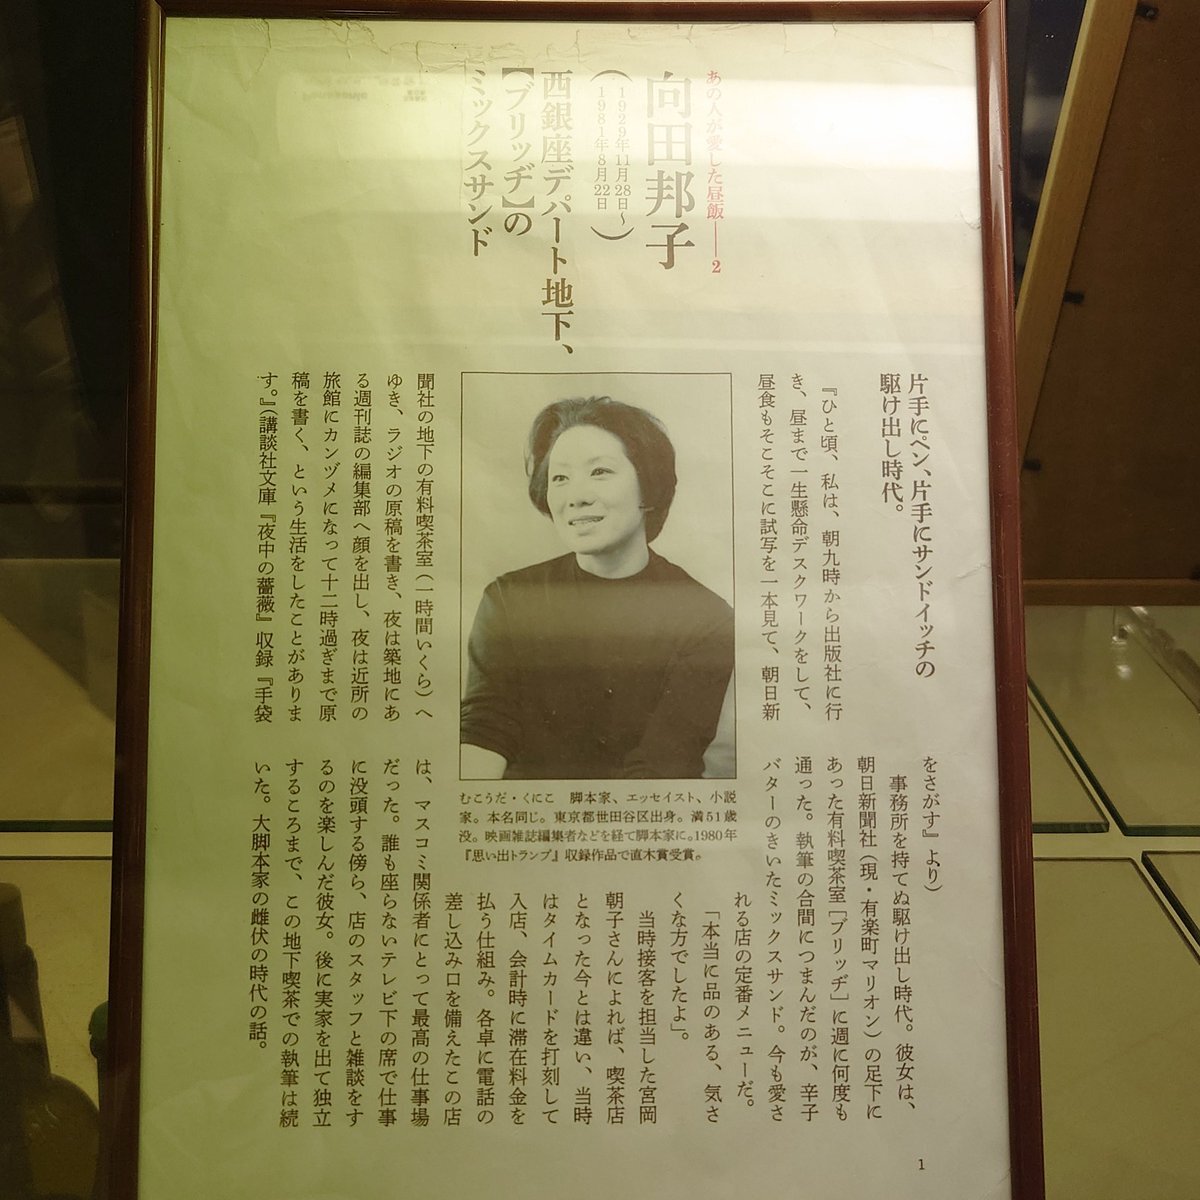 あの人が愛した昼飯——2
向田邦子
(1929年11月28日〜
1981年8月22日)
西銀座デパート地下、
【ブリッヂ】の
ミックスサンド
片手にペン、片手にサンドイッチの
駆け出し時代。
『ひと頃、私は、朝九時から出版社に行
き、昼まで一生懸命デスクワークをして、
昼食もそこそこに試写を一本見て、朝日新
聞社の地下の有料喫茶室(一時間いくら)へ
ゆき、ラジオの原稿を書き、夜は築地にあ
る週刊誌の編集部へ顔を出し、夜は近所の
旅館にカンヅメになって十二時過ぎまで原
稿を書く、という生活をしたことがありま
す。』(講談社文庫『夜中の薔薇』収録『手袋
をさがす』より)
事務所を持てぬ駆け出し時代。彼女は、
朝日新聞社(現・有楽町マリオン)の足下に
あった有料喫茶室[ブリッヂ]に週に何度も
通った。執筆の合間につまんだのが、辛子
バターのきいたミックスサンド。今も愛さ
れる店の定番メニューだ。
「本当に品のある、気さ
くな方でしたよ」。
当時接客を担当した宮岡
朝子さんによれば、喫茶店
となった今とは違い、当時
はタイムカードを打刻して
入店、会計時に滞在料金を
払う仕組み。各卓に電話の
差し込み口を備えたこの店
は、マスコミ関係者にとって最高の仕事場
だった。誰も座らないテレビ下の席で仕事
に没頭する傍ら、店のスタッフと雑談をす
るのを楽しんだ彼女。後に実家を出て独立
するころまで、この地下喫茶での執筆は続
いた。大脚本家の雌伏の時代の話。
むこうだ・くにこ　脚本家、エッセイスト、小説
家。本名同じ。東京都世田谷区出身。満51歳
没。映画雑誌編集者などを経て脚本家に。1980年
『思い出トランプ』収録作品で直木賞受賞。
1